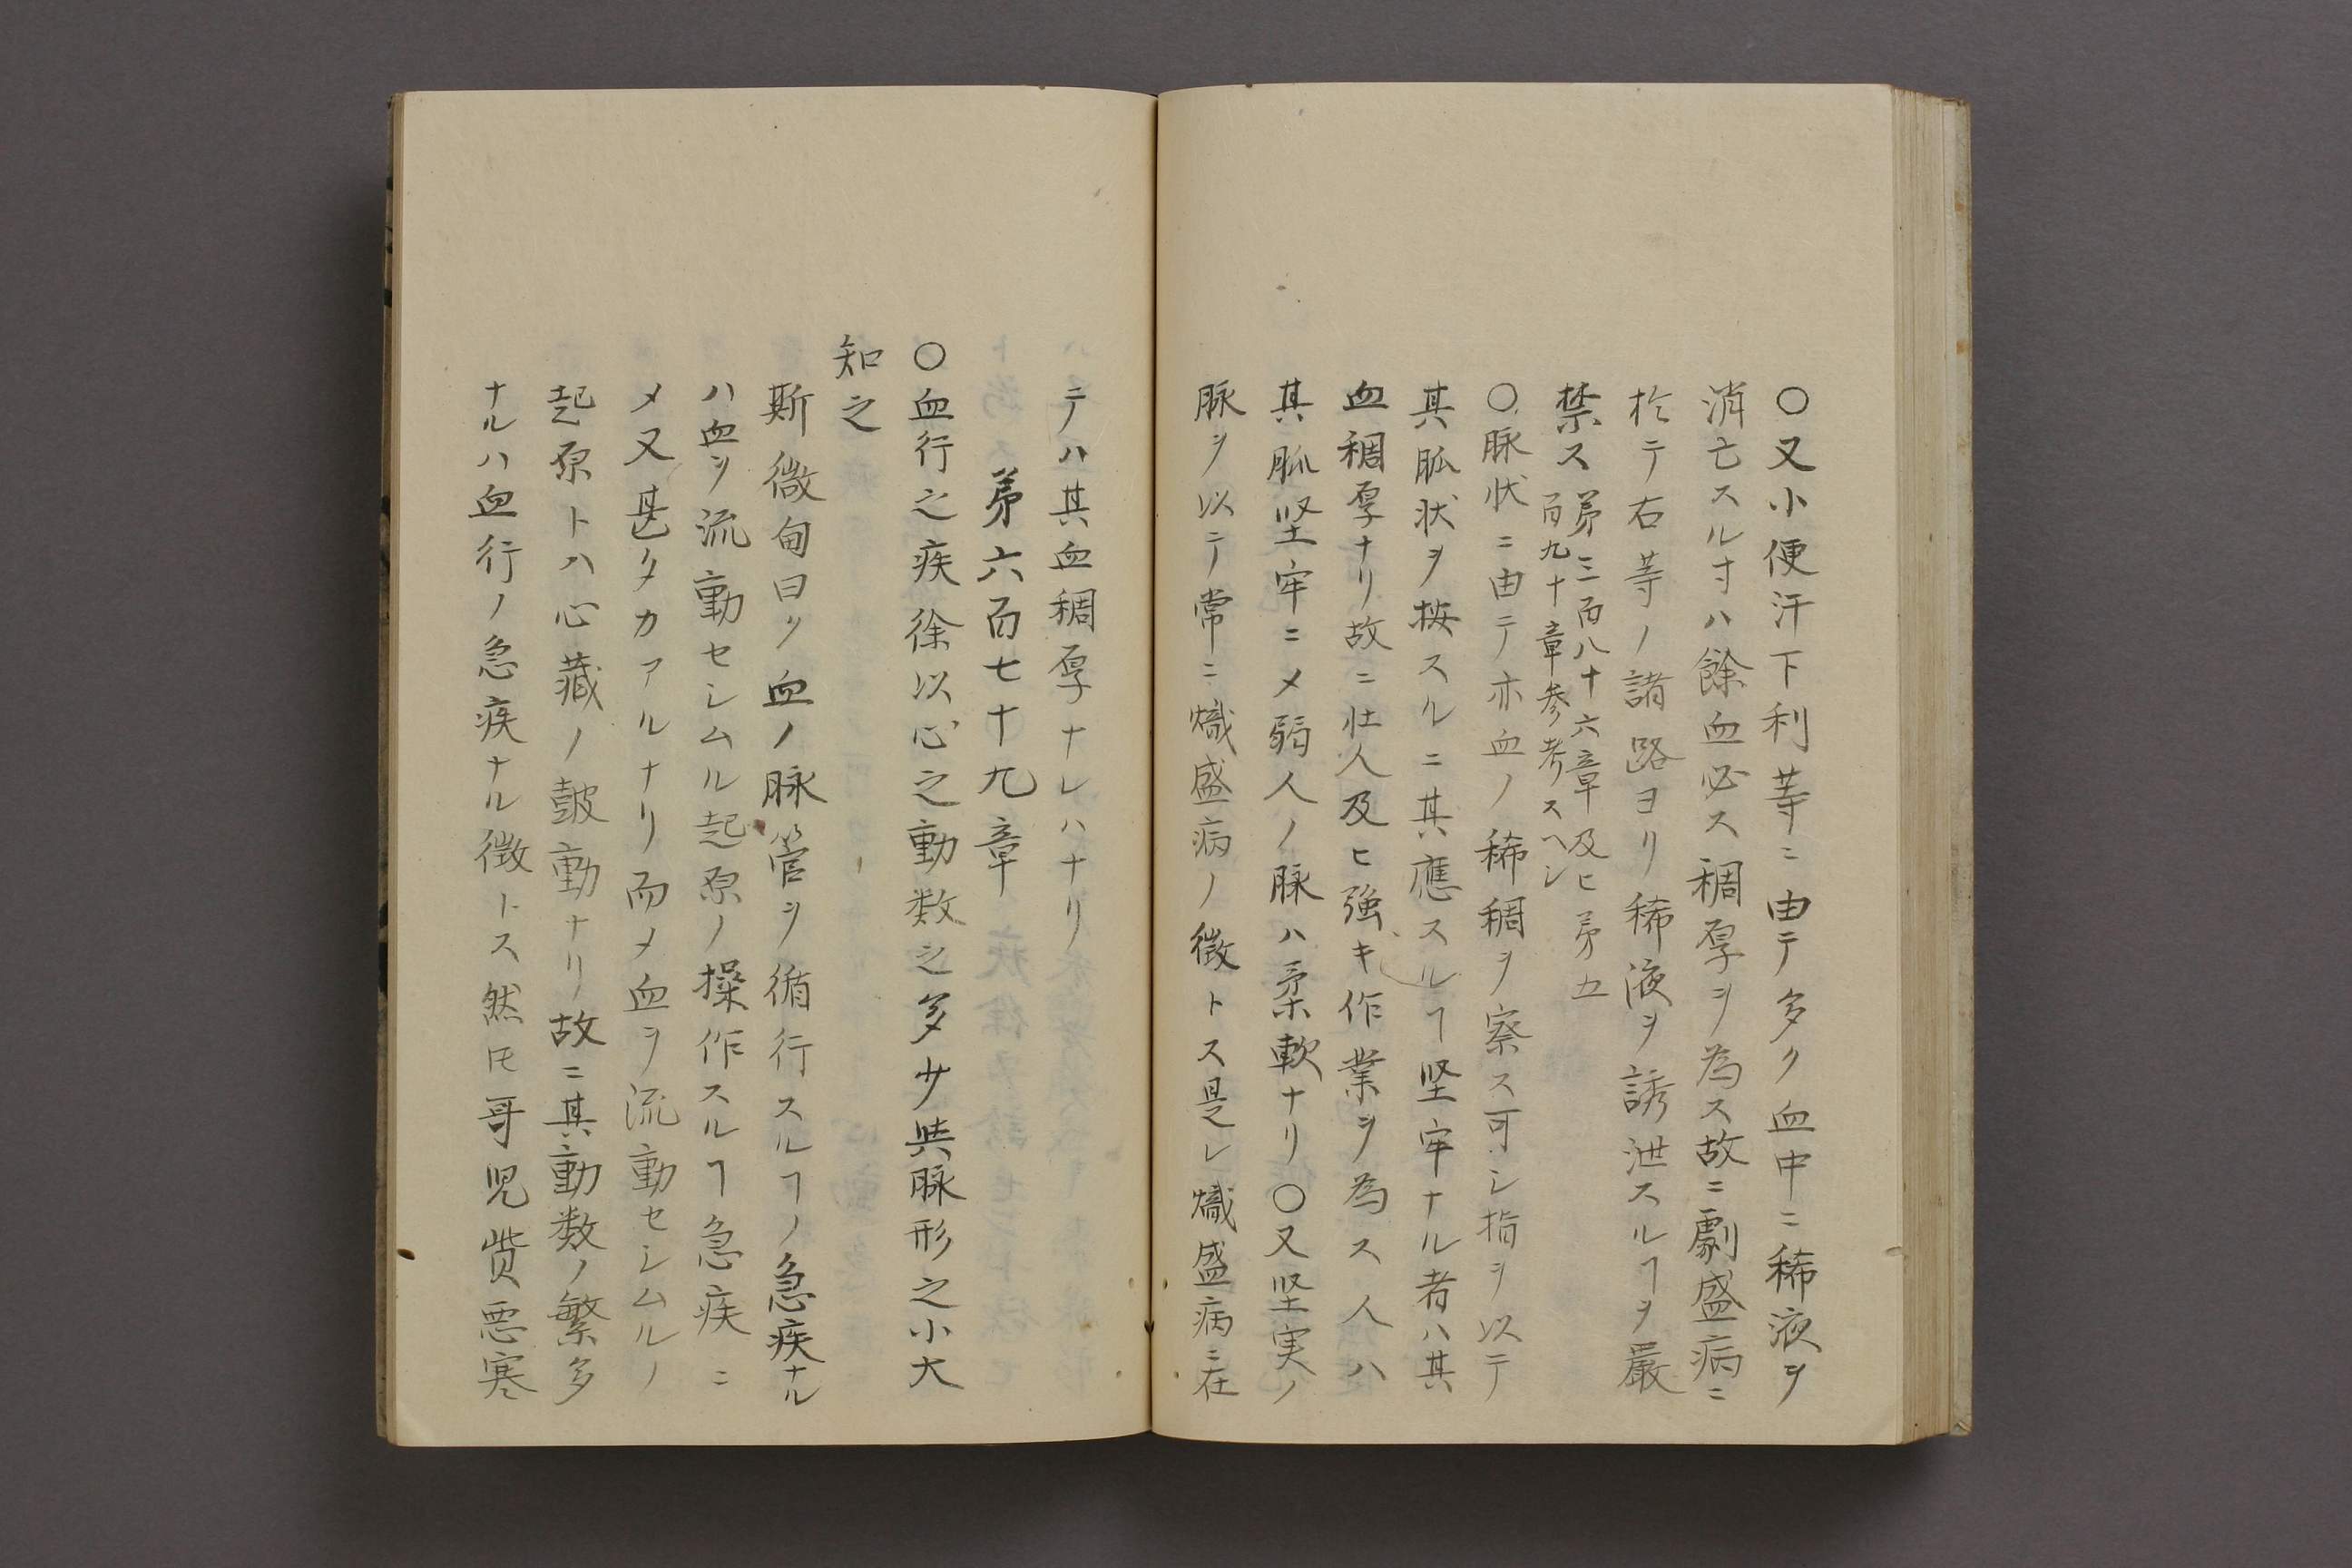 〇又小便汗下利等ニ由テ多ク血中ニ稀液ヲ
消亡スル寸ハ餘血必ス稠厚ヲ為ス故ニ劇盛病ニ
於テ右等ノ諸路ヨリ稀液ヲ誘泄スルヿヲ嚴
禁ス
第三百八十六章及ヒ第五
百九十章参考スヘシ
〇脉状ニ由テ亦血ノ稀稠ヲ察ス可シ指ヲ以テ
其脈状ヲ按スルニ其應スルヿ坚牢ナル者ハ其
血稠厚ナリ故ニ壮人及ヒ強キ作業ヲ為ス人ハ
其脈坚牢ニ乄弱人ノ脉ハ柔軟ナリ〇又坚実ノ
脉ヲ以テ常ニ熾盛病ノ徴トス是レ熾盛病ニ在
テハ其血稠厚ナレハナリ
第六百七十九章
〇血行之疾徐以心之動数之多少與脉形之小大
知之
斯微甸曰ク血ノ脉管ヲ循行スルヿノ急疾ナル
ハ血ヲ流動セシムル起原ノ操作スルヿ急疾ニ
乄又甚タカアルナリ而乄血ヲ流動セシムルノ
起原トハ心藏ノ皷動ナリ故ニ其動数ノ繁多
ナルハ血行ノ急疾ナル徴トス然𪜈哥児貲悪寒